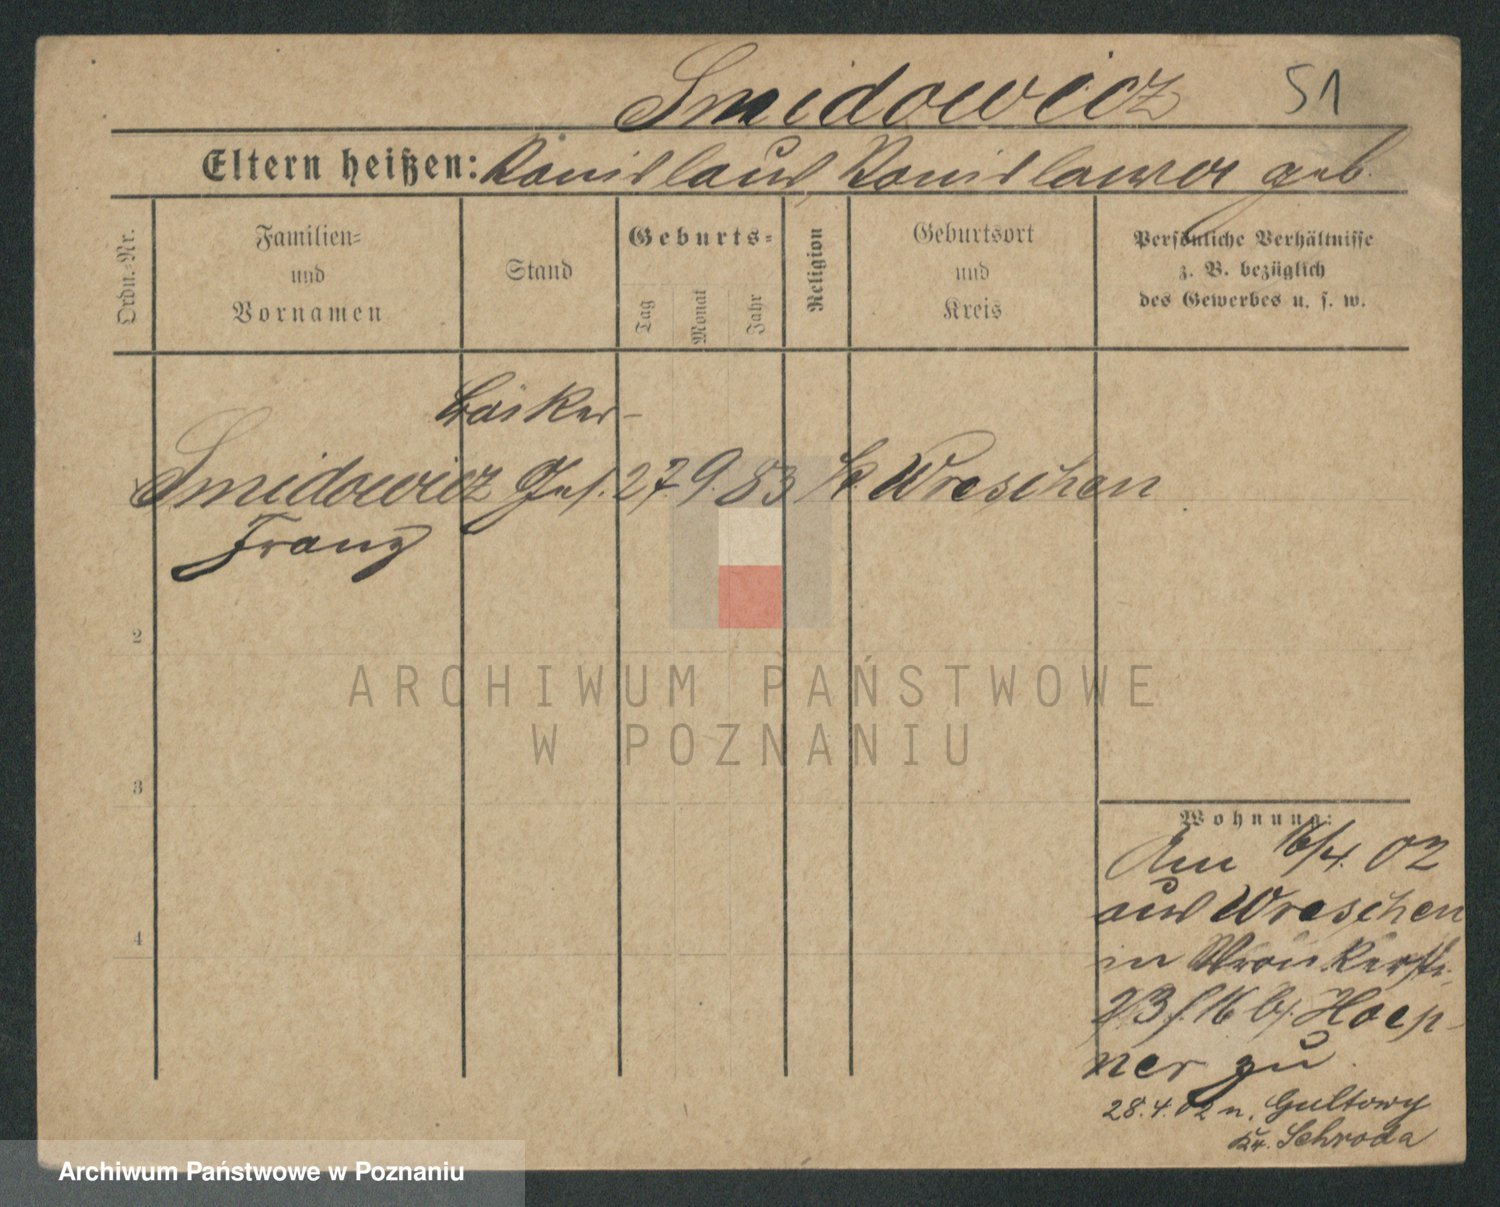 Smidowicz 51
Eltern heißen: geb.
Ordn.-Nr.
Familien-
und
Vornamen
Stand
Geburts-
Tag
Monat
Jahr
Religion
Geburtsort
und
Kreis
Persönliche Verhältnisse
z. B. bezüglich
des Gewerbes u. s. w.
Bäcker-
Smidowicz Ges. 27. 9. 83 k. Wreschen
Franz
2
3
4
Wohnung:
Am 16/4. 02
aus Wreschen
in
23 b/ Hoep-
ner zu
28.4.02 n. Gultowy
Kr. Schroda
ARCHIWUM PAŃSTWOWE
W POZNANIU
Archiwum Państwowe w Poznaniu